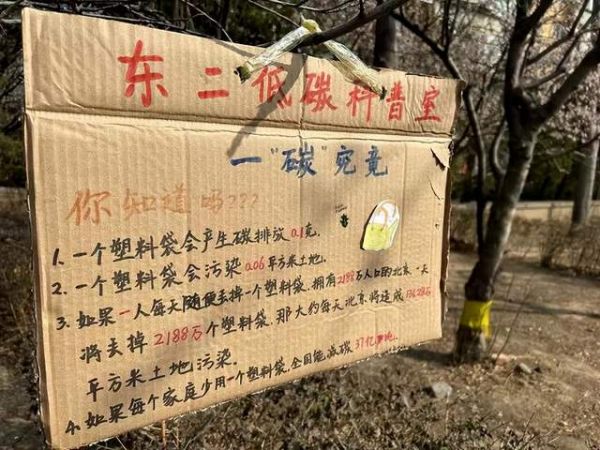 东二低碳科普室
一"碳"究竟
你知道吗???
1. 一个塑料袋会产生碳排放0.1克.
2. 一个塑料袋会污染0.06平方米土地.
3. 如果一人每天随便丢掉一个塑料袋,拥有2188万人口的北京一天
将丢掉2188万个塑料袋.那大约每天北京将造成131.28万
平方米土地污染.
4. 如果每个家庭少用一个塑料袋.全国能减碳